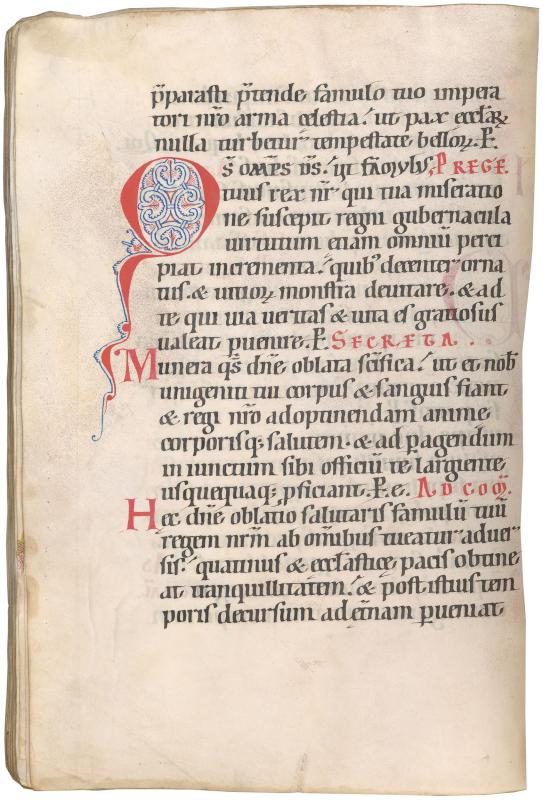 p̄parasti p̄tende famulo tuo impera
tori nr̄o arma celestia. ut pax eccl̄aꝝ
nulla turbetur tempestate belloꝝ. P̄.
Qs̄ om̄ps d̄s. ut famulus P REGE.
tuus rex nr̄ qui tua miseratio
ne suscepit regni gubernacula
uirtutum etiam omniū perci
piat incrementa. quib; decenter orna
tus. & uitioꝝ monstra deuitare. & ad
te qui uia ueritas & uita es gratiosus
ualeat puenire. P̄. SECRETA.
Munera qs̄ dn̄e oblata sc̄ifica. ut et nob̄
unigeniti tui corpus & sanguis fiant
& regi nr̄o ad optinendam anime
corporisq; salutem. & ad ꝑagendum
iniunctum sibi officiū te largiente
usquequaq; ꝓficiant. P̄. e. AD COM̄.
Hec dn̄e oblatio salutaris famulū tuū
regem nr̄m ab om̄ibus tueatur aduer
sis. quatinus & eccl̄asticę pacis obtine
at tranquillitatem. & post istius tem
poris decursum ad et̄nam ꝑueniat